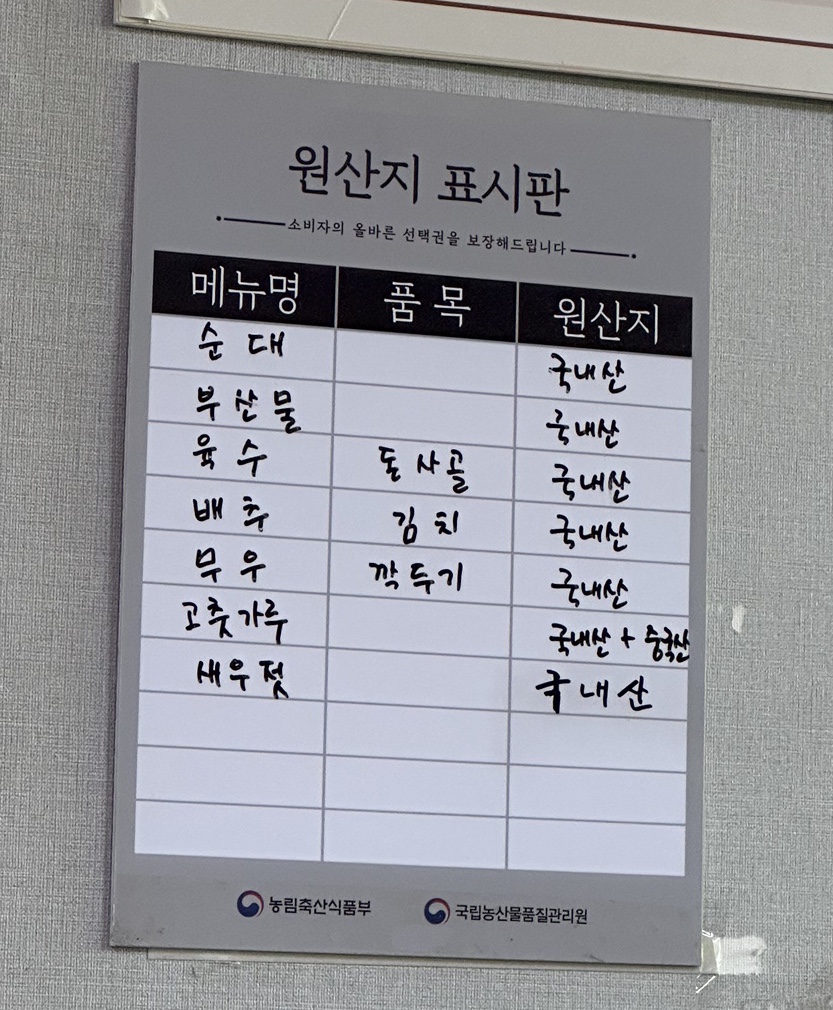 원산지 표시판
소비자의 올바른 선택권을 보장해드립니다
메뉴명 품목 원산지
순대 국내산
부산물 국내산
육수 돈사골 국내산
배추 김치 국내산
무우 깍두기 국내산
고춧가루 국내산 + 중국산
새우젓 국내산
농림축산식품부 국립농산물품질관리원